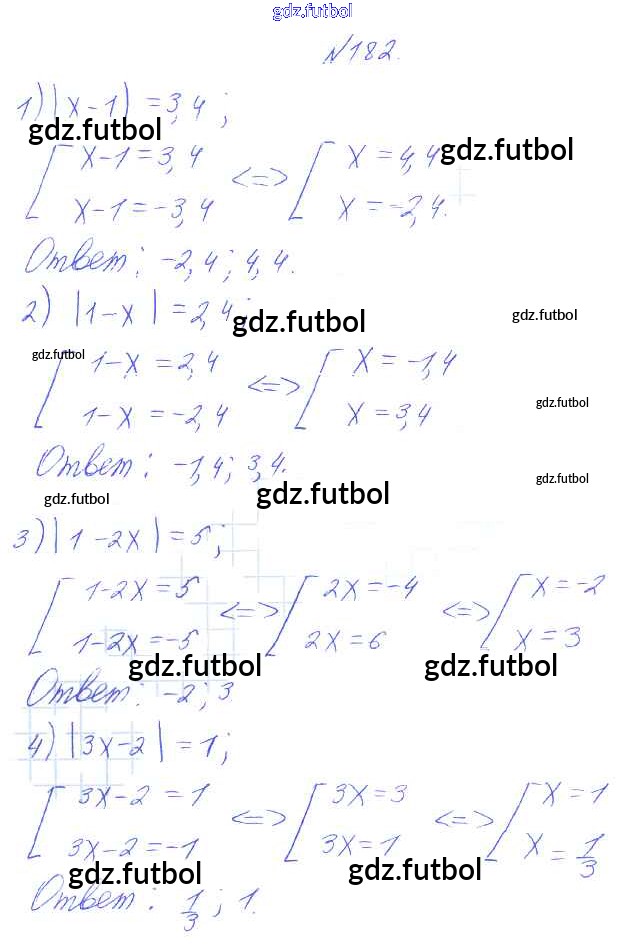 gdz.futbol
№182.
1) |x-1| = 3,4 ;
gdz.futbol
[ x-1 = 3,4 <=> [ x = 4,4 gdz.futbol
x-1 = -3,4 x = -2,4.
Ответ: -2,4 ; 4,4.
2) |1-x| = 2,4 ; gdz.futbol gdz.futbol
gdz.futbol [ 1-x = 2,4 <=> [ x = -1,4
1-x = -2,4 x = 3,4 gdz.futbol
Ответ: -1,4 ; 3,4. gdz.futbol
gdz.futbol gdz.futbol
3) |1-2x| = 5 ;
[ 1-2x = 5 <=> [ 2x = -4 <=> [ x = -2
1-2x = -5 2x = 6 x = 3
gdz.futbol gdz.futbol
Ответ: -2 ; 3
4) |3x-2| = 1 ;
[ 3x-2 = 1 <=> [ 3x = 3 <=> [ x = 1
3x-2 = -1 3x = 1 x = 1/3
gdz.futbol gdz.futbol
Ответ: 1/3 ; 1.